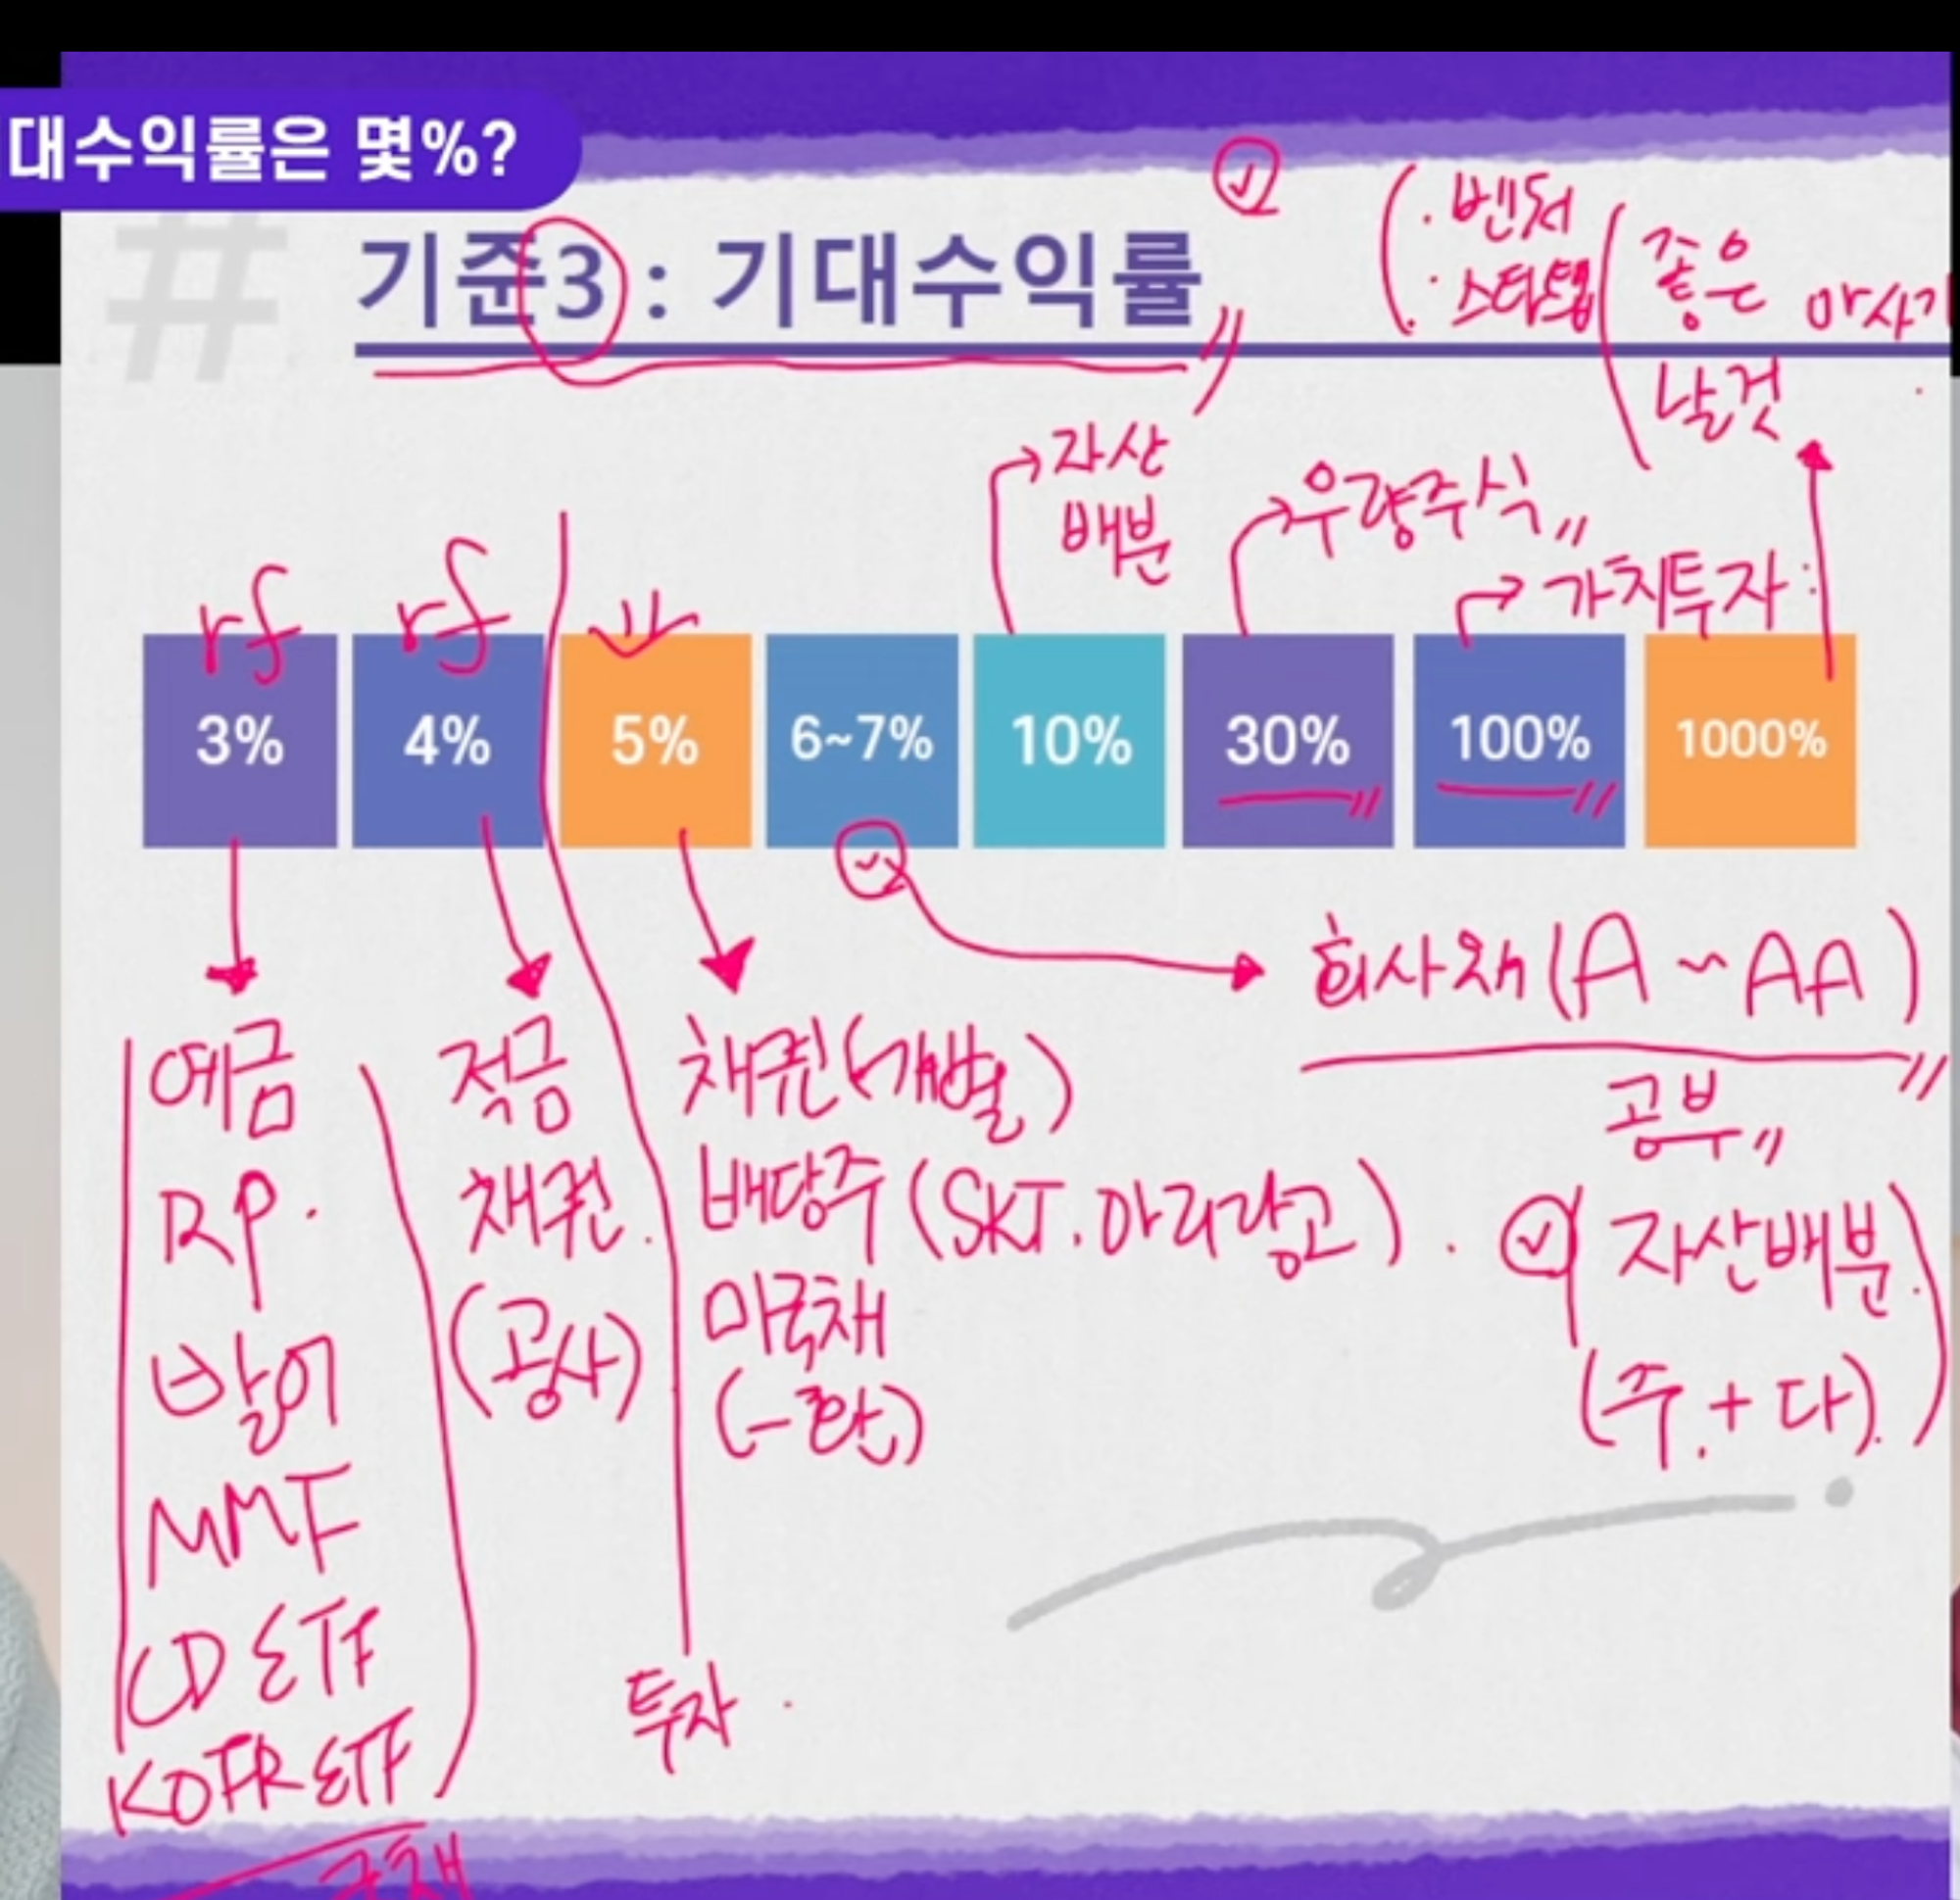 대수익률은 몇%?
#
기준3 : 기대수익률
벤처
스타트업
좋은
날것
자산
배분
우량주식
가치투자
rf
rf
3%
4%
5%
6~7%
10%
30%
100%
1000%
회사채(A~AA)
공부
예금
RP
발어
MMF
CD ETF
KOFR ETF
국채
적금
채권
(공사)
채권(개별)
배당주(SKT.아리랑고)
미국채
(-환)
자산배분
(주.+다)
투자